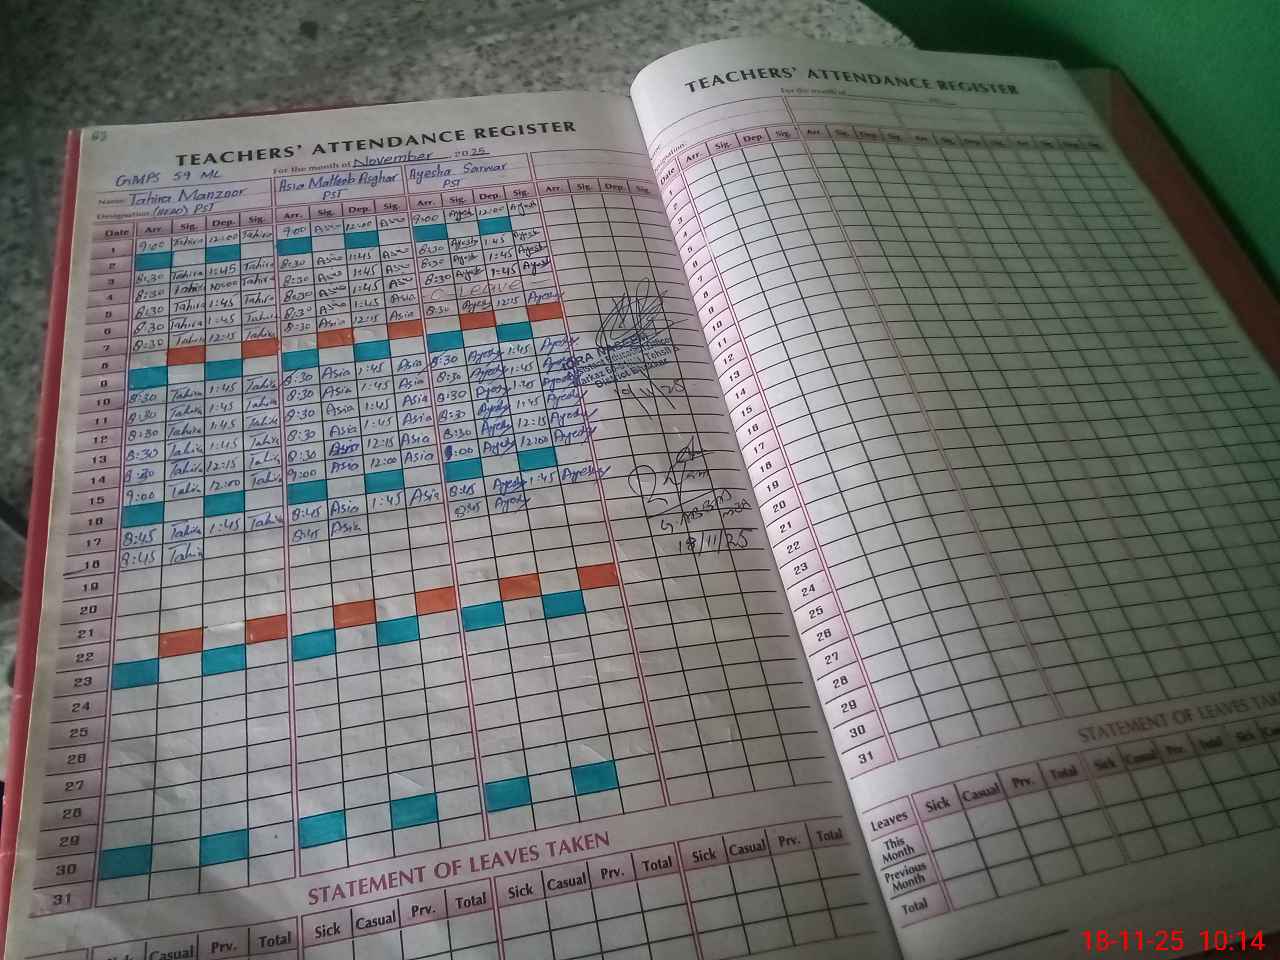 63
TEACHERS' ATTENDANCE REGISTER
GMPS 59 ML For the month of November 2025
Name: Tahira Manzoor Asia Mateeb Asghar Ayesha Sarwar
Designation (HEAD) PST PST PST
Date Arr. Sig. Dep. Sig. Arr. Sig. Dep. Sig. Arr. Sig. Dep. Sig. Arr. Sig. Dep. Sig.
1 9:00 Tahira 12:00 Tahira 9:00 12:00 9:00 Ayesh 12:00 Ayesh
2
3 8:30 Tahira 1:45 Tahira 8:30 1:45 8:30 Ayesh 1:45 Ayesh
4 8:30 Tahira Tahira 8:30 1:45 8:30 Ayesh 1:45 Ayesh
5 8:30 Tahira 1:45 Tahira 8:30 1:45 LEAVE
6 8:30 Tahira 1:45 Tahira 8:30 1:45 Asia
7 8:30 Tahira 12:15 Tahira 8:30 Asia 12:15 Asia 8:30 Ayesh 12:15 Ayesh
8
9
10 8:30 Tahira 1:45 Tahira 8:30 Asia 1:45 Asia 8:30 Ayesh 1:45 Ayesh
11 8:30 Tahira 1:45 Tahira 8:30 Asia 1:45 Asia 8:30 Ayesh 1:45 Ayesh
12 8:30 Tahira 1:45 Tahira 8:30 Asia 1:45 Asia 8:30 Ayesh 1:45 Ayesh
13 8:30 Tahira 1:45 Tahira 8:30 Asia 1:45 Asia 8:30 Ayesh 1:45 Ayesh
14 8:30 Tahira 12:15 Tahira 8:30 Asia 12:15 Asia 8:30 Ayesh 12:15 Ayesh
15 9:00 Tahira 12:00 Tahira 9:00 Asia 12:00 Asia 9:00 Ayesh 12:00 Ayesh
16
17 8:45 Tahira 1:45 Tahira 8:45 Asia 1:45 Asia 8:45 Ayesh 1:45 Ayesh
18 8:45 Tahira 8:45 Asia 8:45 Ayesh
19
20
21
22
23
24
25
26
27
28
29
30
31
18/11/25
STATEMENT OF LEAVES TAKEN
Sick Casual Prv. Total Sick Casual Prv. Total Sick Casual Prv. Total Sick Casual Prv. Total
TEACHERS' ATTENDANCE REGISTER
For the month of
Date Arr. Sig. Dep. Sig. Arr. Sig. Dep. Sig.
1
2
3
4
5
6
7
8
9
10
11
12
13
14
15
16
17
18
19
20
21
22
23
24
25
26
27
28
29
30
31
STATEMENT OF LEAVES TAK
Leaves Sick Casual Prv. Total Sick Casual Prv. Total Sick
This Month
Previous Month
Total
18-11-25 10:14